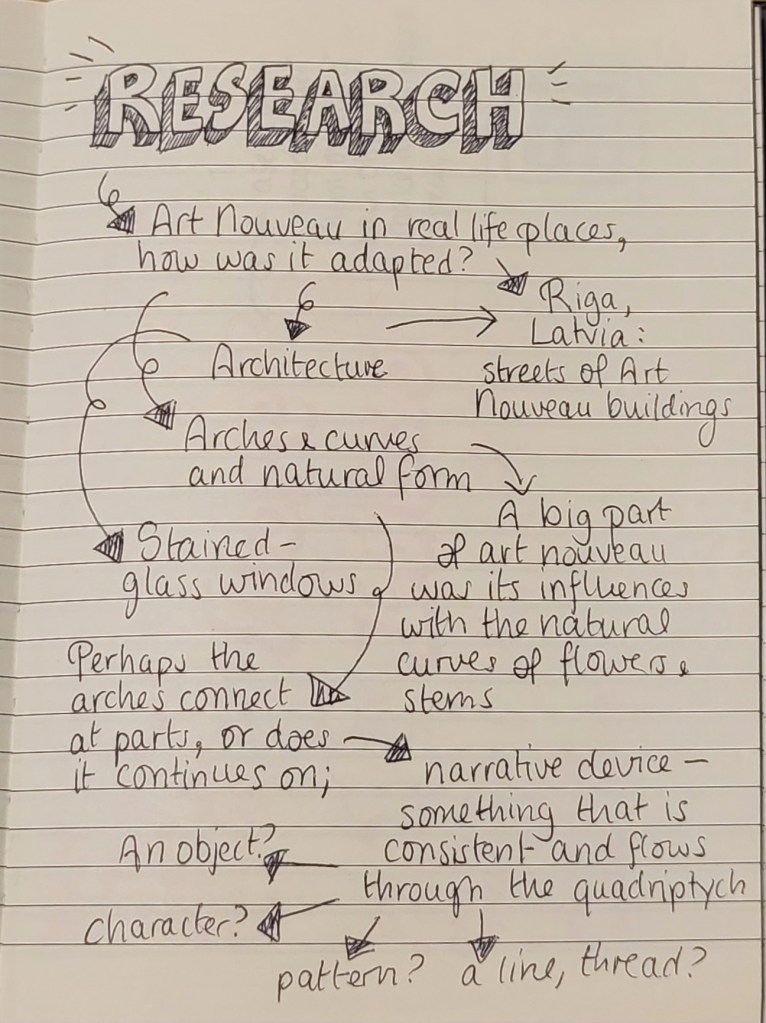 RESEARCH
Art Nouveau in real life places,
how was it adapted?
Riga,
Latvia:
streets of Art
Nouveau buildings
Architecture
Arches & curves
and natural form
A big part
of art nouveau
was its influences
with the natural
curves of flowers &
stems
Stained-
glass windows
Perhaps the
arches connect
at parts, or does
it continues on;
narrative device -
something that is
consistent and flows
through the quadriptych
An object?
character?
pattern?
a line, thread?